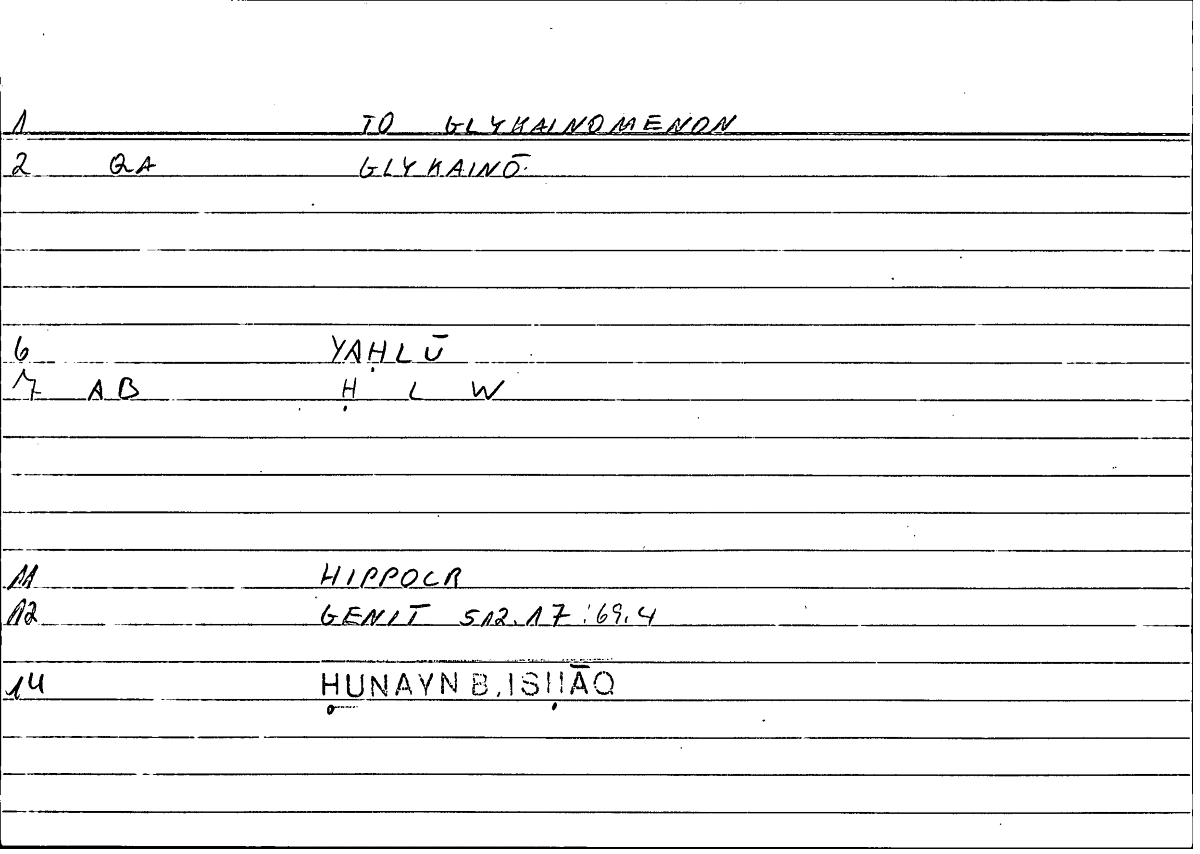 1 TO GLYKAINOMENON
2 QA GLYKAINŌ
6 YAḤLŪ
7 AB Ḥ L W
11 HIPPOCR
12 GENIT 512.17:69.4
14 ḤUNAYN B.ISḤĀQ